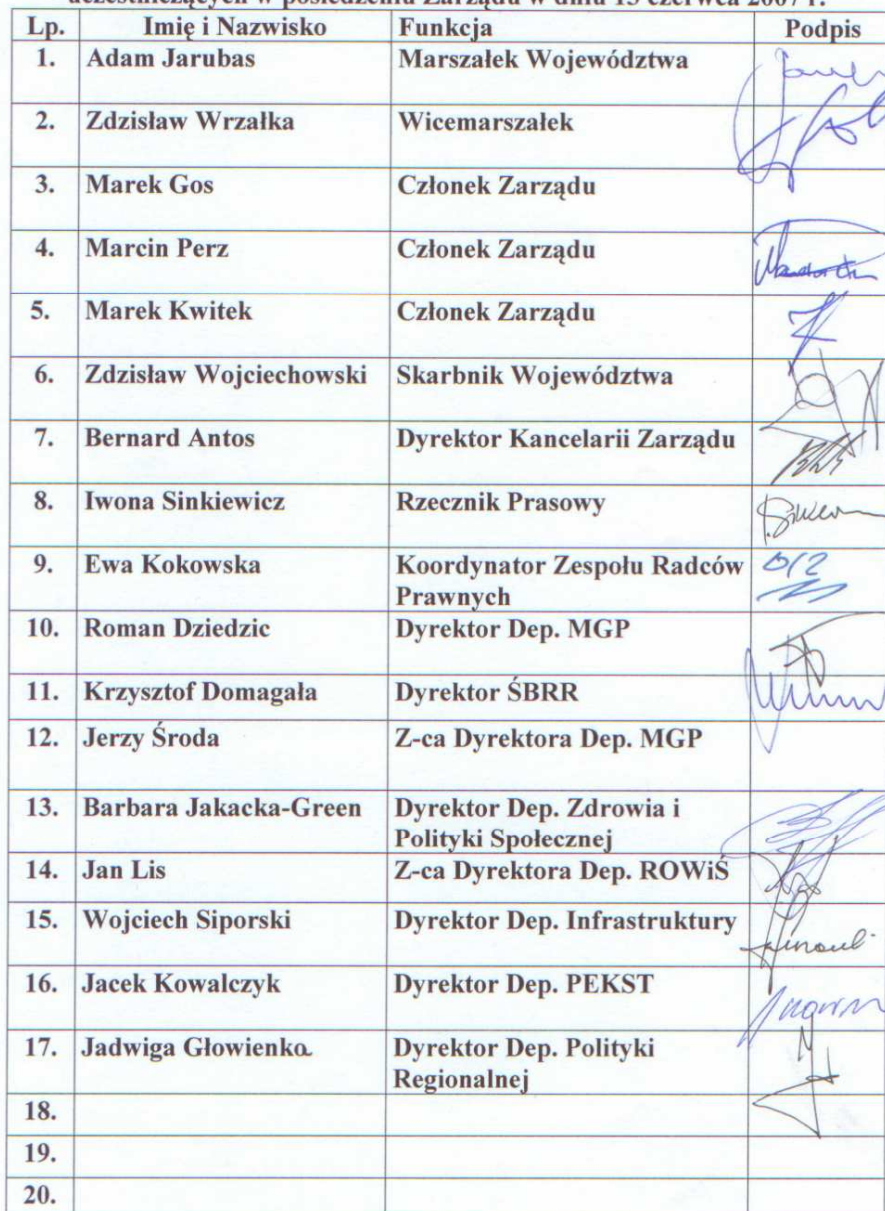 uczestniczących w posiedzeniu Zarządu w dniu 13 czerwca 2007 r.
Lp. Imię i Nazwisko Funkcja Podpis
1. Adam Jarubas Marszałek Województwa
2. Zdzisław Wrzałka Wicemarszałek
3. Marek Gos Członek Zarządu
4. Marcin Perz Członek Zarządu
5. Marek Kwitek Członek Zarządu
6. Zdzisław Wojciechowski Skarbnik Województwa
7. Bernard Antos Dyrektor Kancelarii Zarządu
8. Iwona Sinkiewicz Rzecznik Prasowy
9. Ewa Kokowska Koordynator Zespołu Radców
Prawnych
10. Roman Dziedzic Dyrektor Dep. MGP
11. Krzysztof Domagała Dyrektor ŚBRR
12. Jerzy Środa Z-ca Dyrektora Dep. MGP
13. Barbara Jakacka-Green Dyrektor Dep. Zdrowia i
Polityki Społecznej
14. Jan Lis Z-ca Dyrektora Dep. ROWiŚ
15. Wojciech Siporski Dyrektor Dep. Infrastruktury
16. Jacek Kowalczyk Dyrektor Dep. PEKST
17. Jadwiga Głowienka Dyrektor Dep. Polityki
Regionalnej
18.
19.
20.